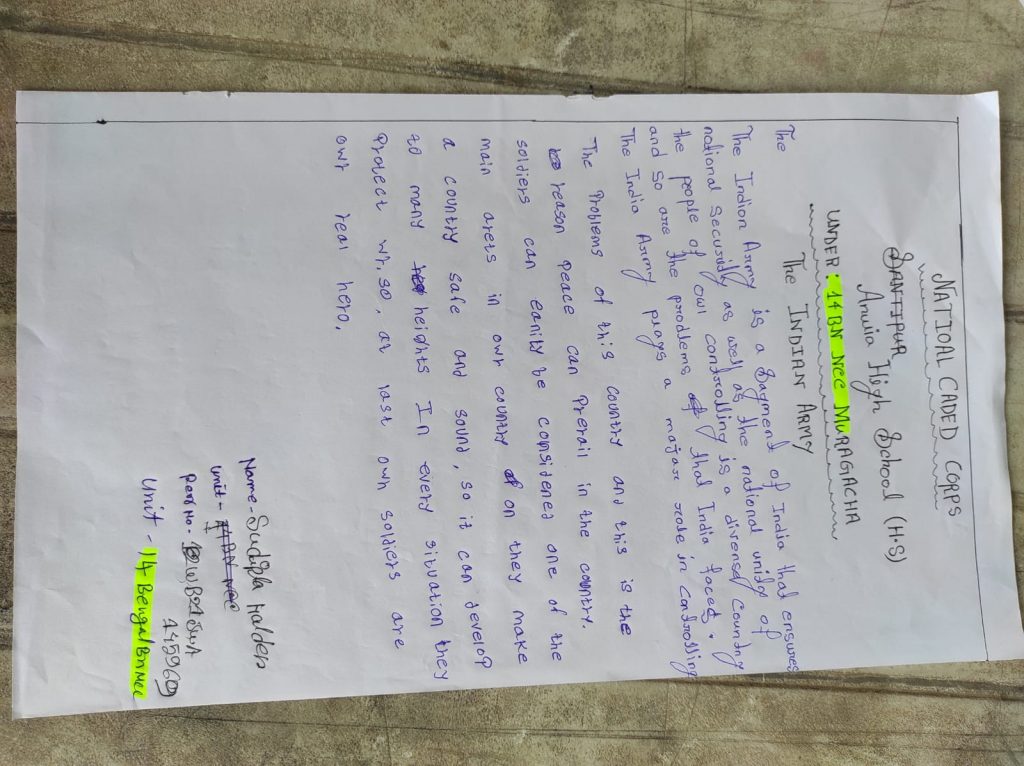 NATIOAL CADED CORPS
SANTIPUR
Anuia High School (H·S)
UNDER: 14 BN NCC MURAGACHA
The INDIAN ARMY
The
The Indian Army is a Sagmend of India that ensures
national Securidy as well as the national unidy of
the people of owl condrolling is a divensed coundny
and so are the prodems of thal India faced.
The India Army plays a majar role in Condrolling
The Problems of this country and this is the
reason peace can Prerail in the country.
soldiers can eanily be considened one of the
main arets in owr country on they make
a country safe and sound, so it can develop
to many heights In every situation they
Protect wh, so, at last own soldiers are
owr real hero.
Name - Sudipta Halder
unit - 14 BN NCC
Red No. - WB21SWA
445969
Unit - 14 Bengal Bn NCC